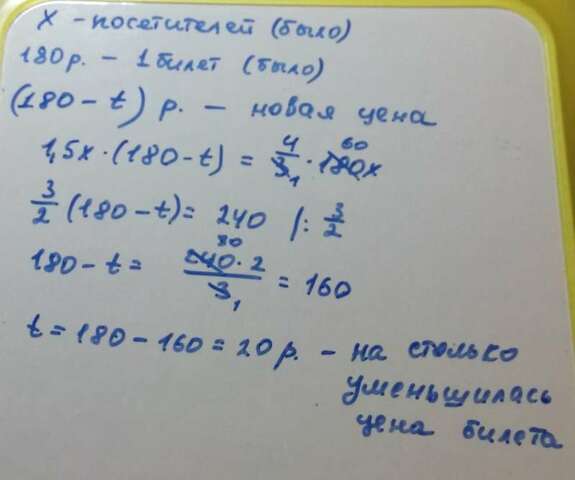 X - посетителей (было)
180 р. - 1 билет (было)
(180 - t) р. - новая цена
1,5x · (180 - t) = 4/3 1 · 180x 60
3/2 (180 - t) = 240 /: 3/2
180 - t = 240 80 · 2 / 3 1 = 160
t = 180 - 160 = 20 р. - на столько
уменьшилась
цена билета